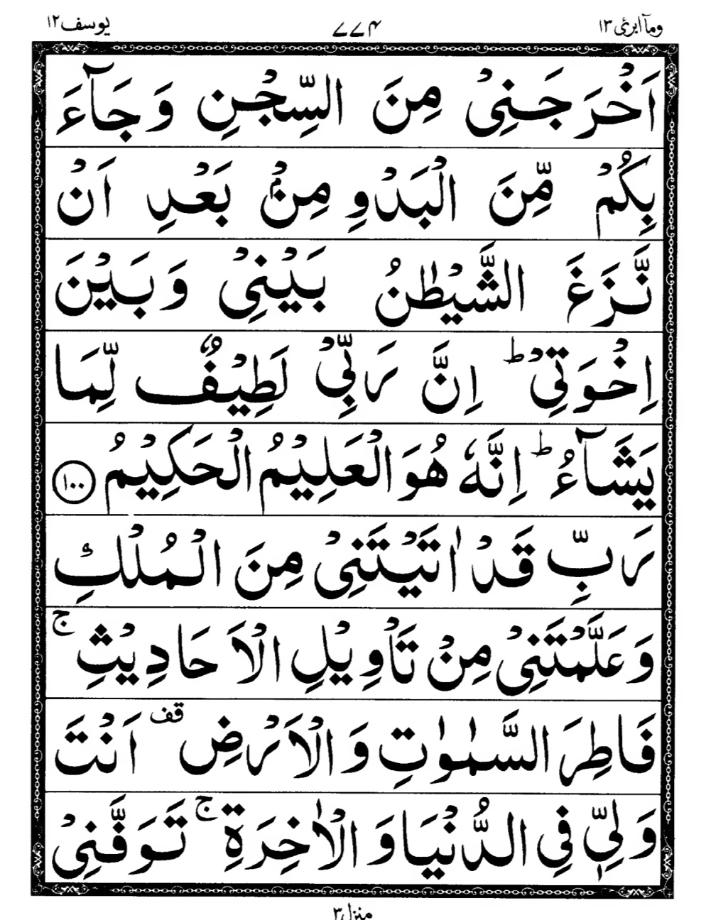 وماۤابرئ ١٣ ۷۷۴ يوسف ١٢
اَخْرَجَنِىْ مِنَ السِّجْنِ وَجَآءَ
بِكُمْ مِّنَ الْبَدْوِ مِنْۢ بَعْدِ اَنْ
نَّزَغَ الشَّيْطٰنُ بَيْنِىْ وَبَيْنَ
اِخْوَتِىْ ؕ اِنَّ رَبِّىْ لَطِيْفٌ لِّمَا
يَشَآءُ ؕ اِنَّهٗ هُوَ الْعَلِيْمُ الْحَكِيْمُ ﴿١٠٠﴾
رَبِّ قَدْ اٰتَيْتَنِىْ مِنَ الْمُلْكِ
وَعَلَّمْتَنِىْ مِنْ تَاْوِيْلِ الْاَحَادِيْثِ ۚ
فَاطِرَ السَّمٰوٰتِ وَالْاَرْضِ قف اَنْتَ
وَلِىّٖ فِى الدُّنْيَا وَالْاٰخِرَةِ ۚ تَوَفَّنِىْ
منزل ٣